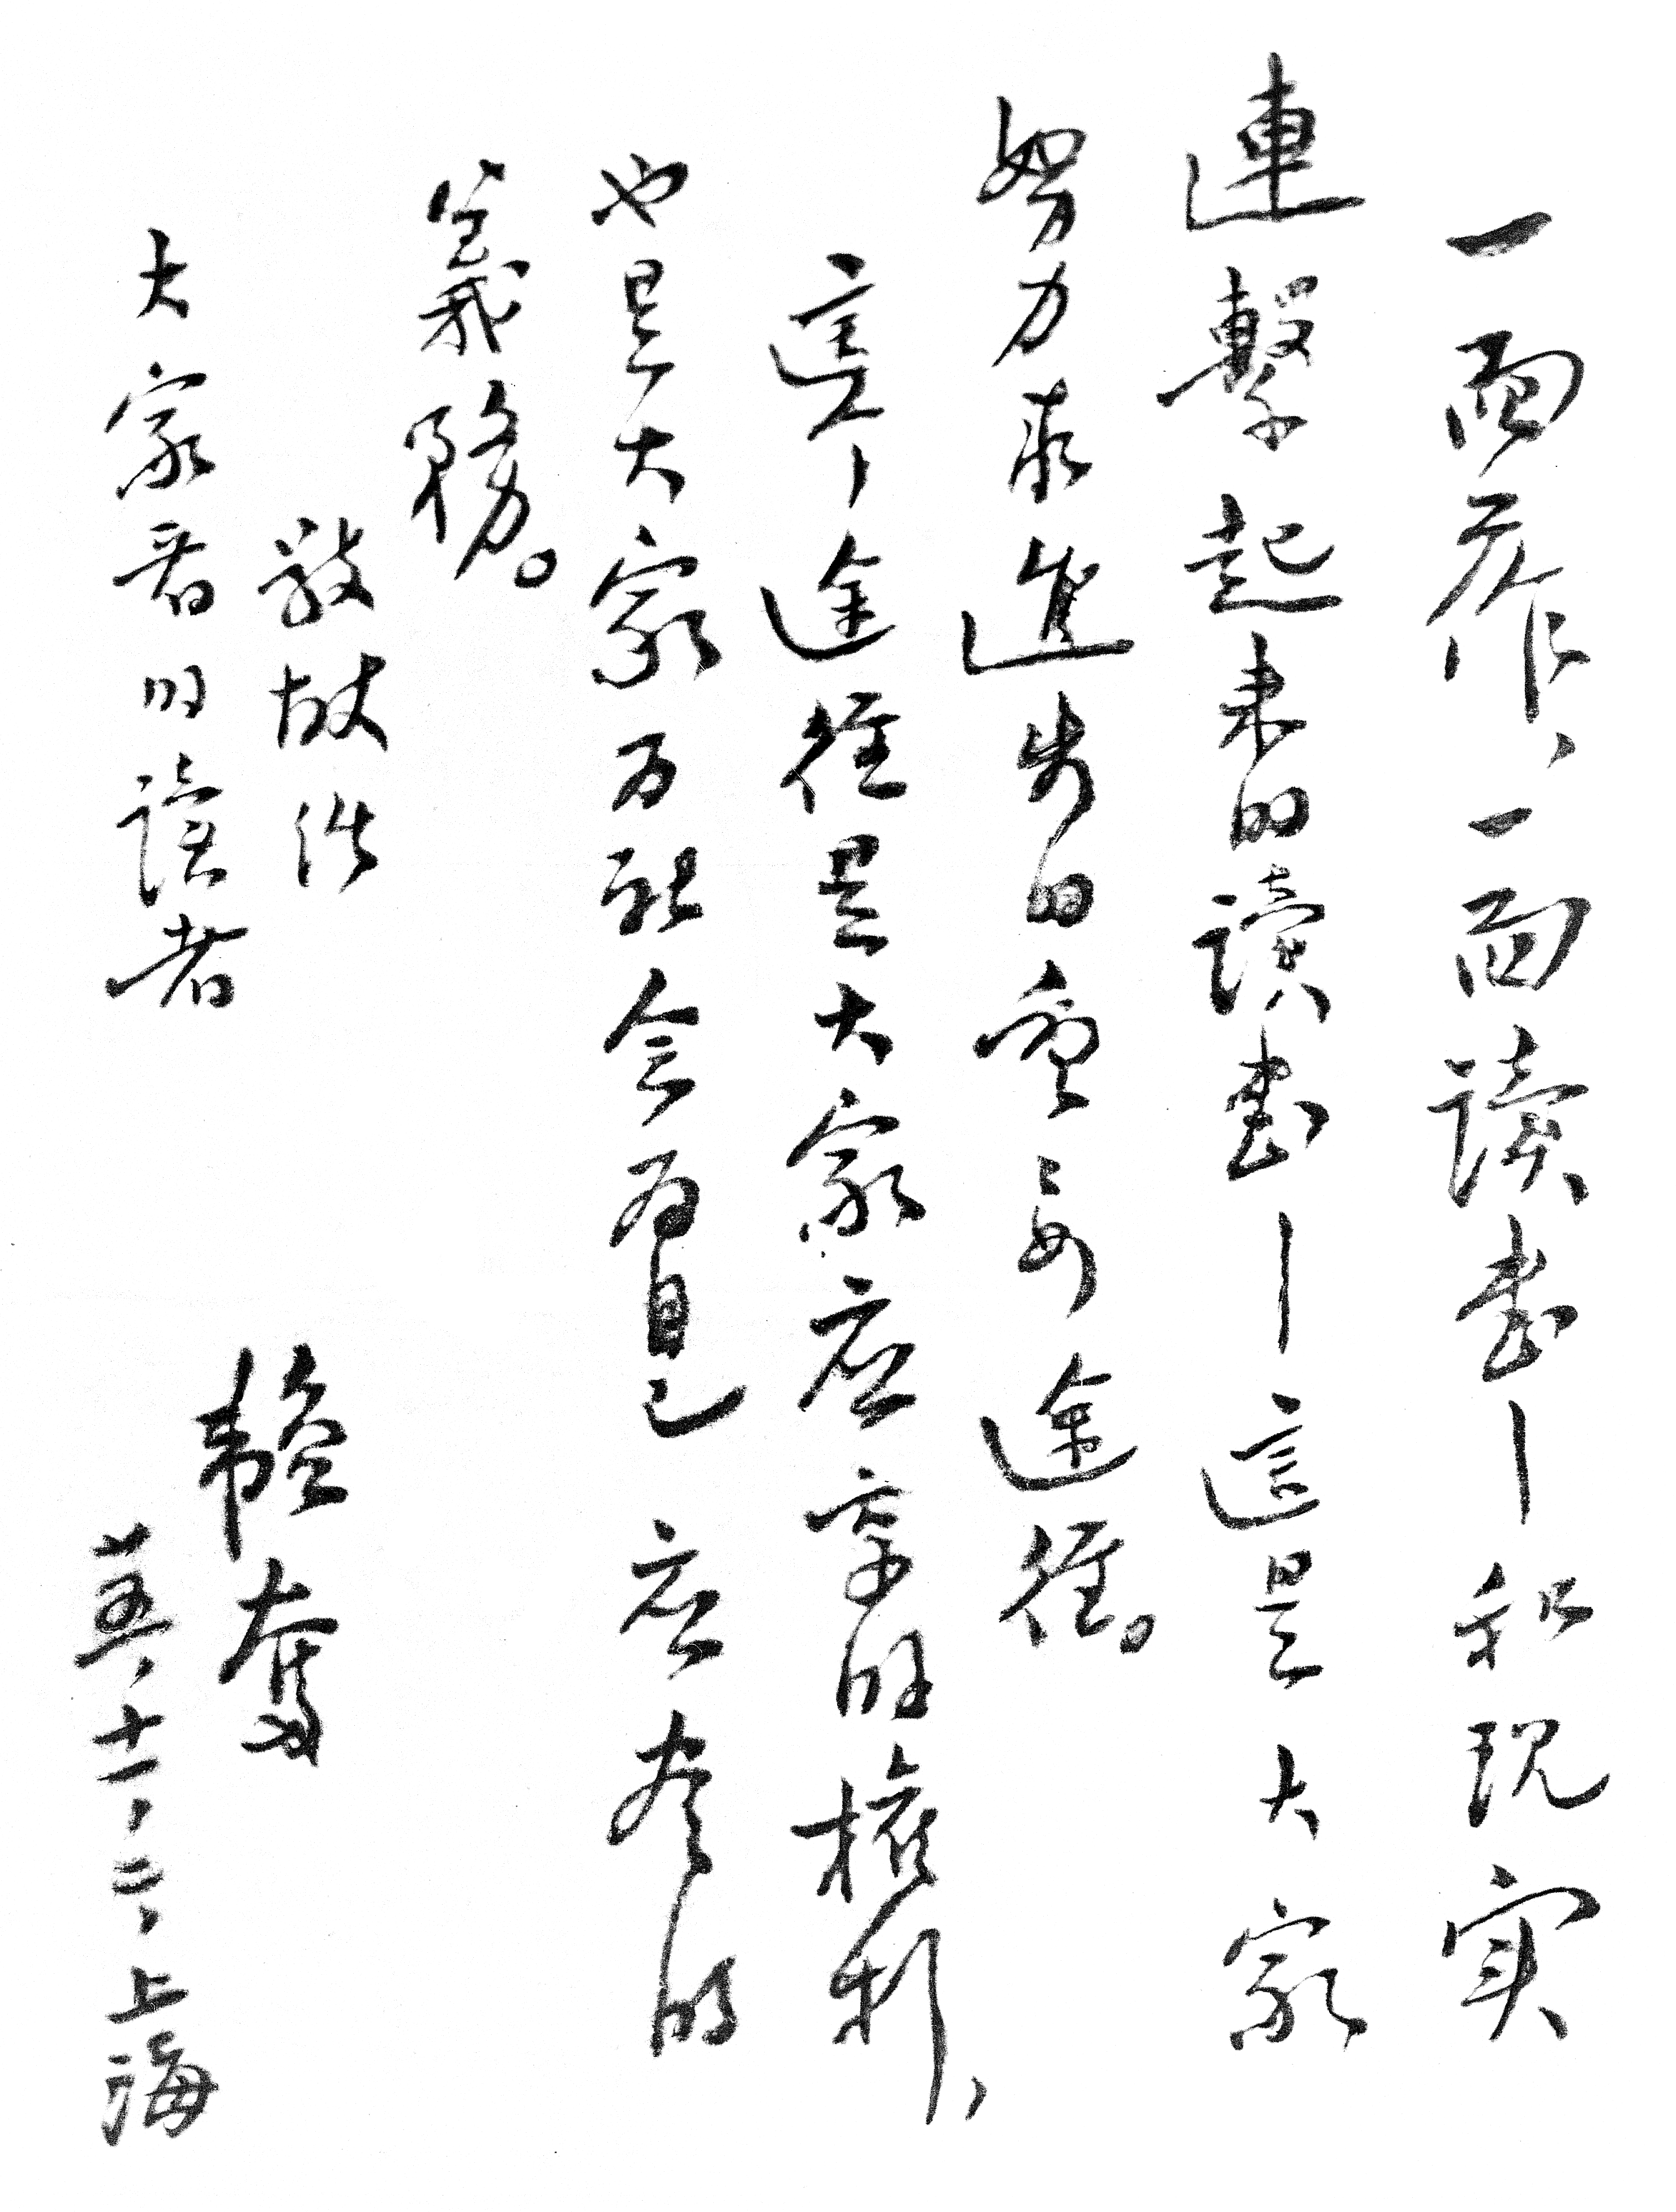 一面工作，一面讀書—和现实
連繫起来的讀書—這是大家
努力求進步的重要途徑。
這个途徑是大家应享的權利，
也是大家为社会为自己应尽的
義務。
敬献给
大家看的讀者
韜奮
廿五，十一，二，上海